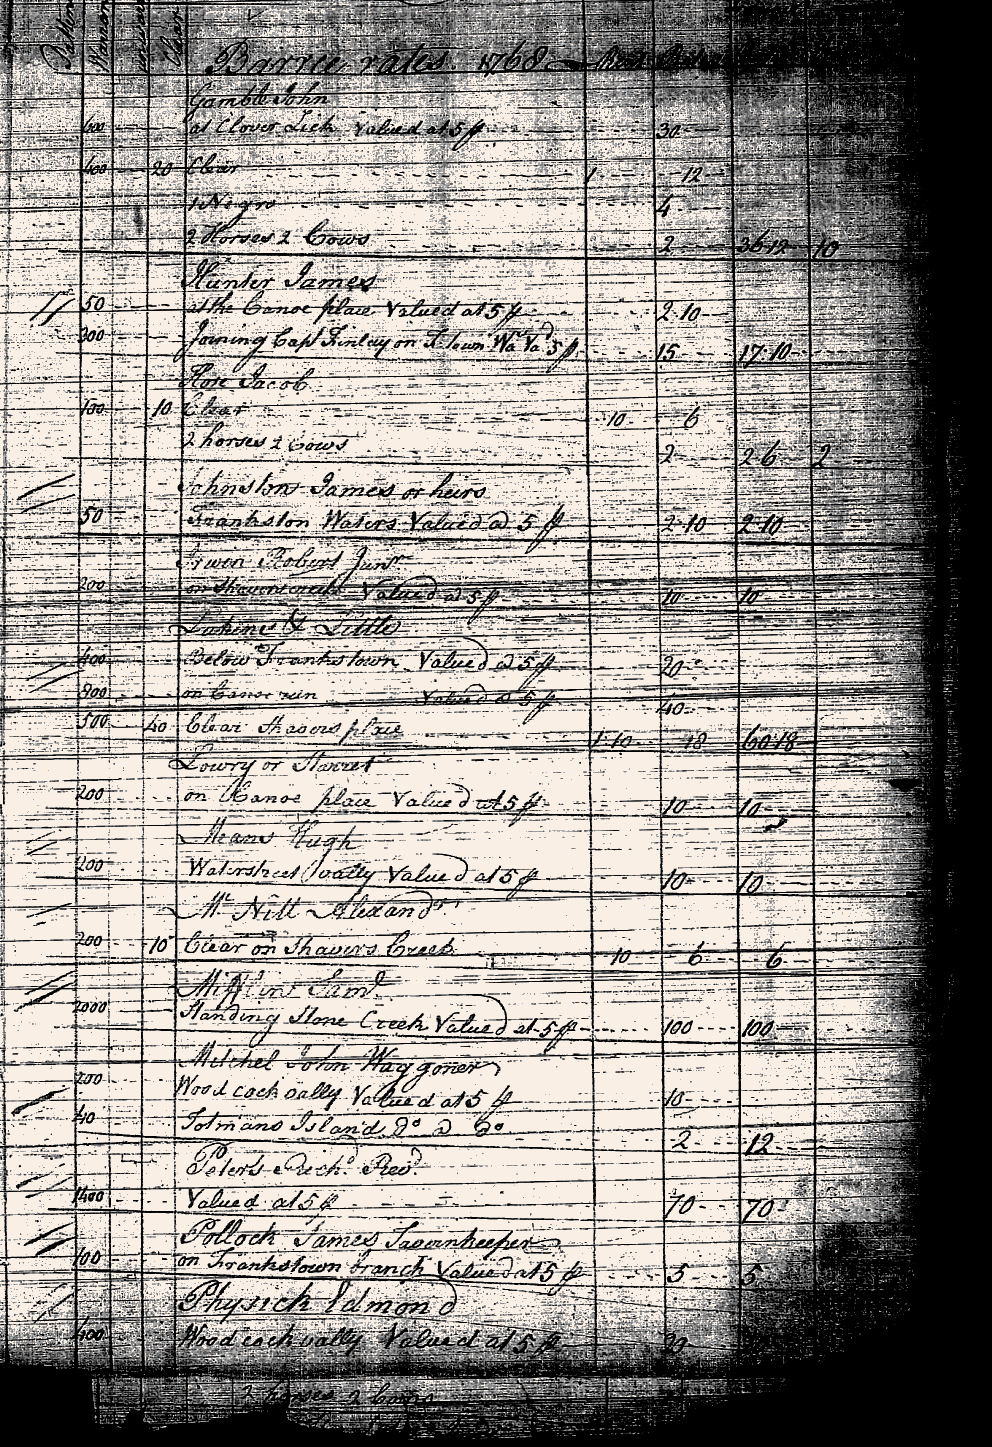 Barree rates 1768
Gamble John
600 at Clover Lick Valued at 5 p 30
400 20 Clear 1 12
1 Negro 4
2 Horses 2 Cows 2 36 12 10
Hunter James
50 at the Canoe place Valued at 5 p 2 10
300 Joining Capt Finlay on F. Town 5 p 15 17 10
Hare Jacob
100 10 Clear 10 6
2 horses 2 Cows 2 2 6 2
Johnston James or heirs
50 Frankston Waters Valued a 5 p 2 10 2 10
Irwin Robert Junr
200 on Valued at 5 p 10 10
Lukins & Little
400 Below Frankstown Valued a 5 p 20
800 on Canoe run Valued at 5 p 40
500 40 Clear Shavers place 1 10 18 60 18
Lowry or Starret
200 on Canoe place Valued at 5 p 10 10
Means Hugh
200 Waterstreet vally Valued at 5 p 10 10
Mc Nitt Alexandr
200 10 Clear on Shavers Creek 10 6 6
Mifflins Saml
2000 Standing Stone Creek Valued at 5 p 100 100
Mitchel John Waggoner
200 Wood cock vally Valued at 5 p 10
40 Totmans Island Do a Do 2 12
Peters Richd Revd
1400 Valued at 5 p 70 70
Pollock James Tavernkeeper
100 on Frankstown branch Valued at 5 p 5 5
Physick Edmond
400 Wood cock vally Valued at 5 p 20
2 horses 2 Cows